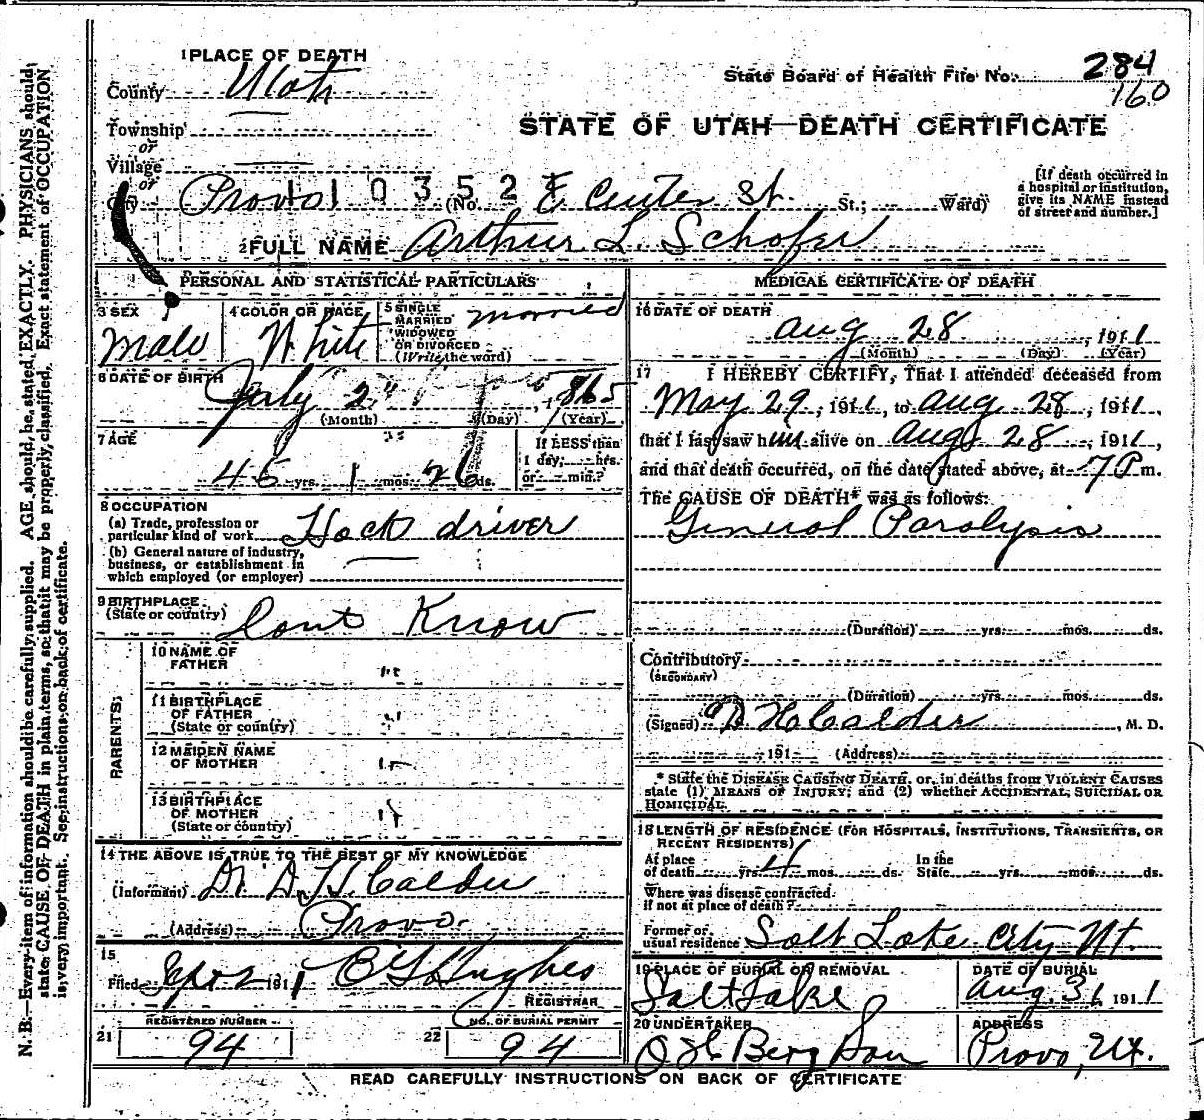 1 PLACE OF DEATH
County Utah
State Board of Health File No. 284
160
Township
or
Village
or
STATE OF UTAH—DEATH CERTIFICATE
City Provo (No. E Center St. St.; Ward)
1 1 0 3 5 2
[If death occurred in a hospital or institution, give its NAME instead of street and number.]
2 FULL NAME Arthur L. Schofer
PERSONAL AND STATISTICAL PARTICULARS
3 SEX
Male
4 COLOR OR RACE
White
5 SINGLE
MARRIED
WIDOWED
OR DIVORCED
(Write the word)
Married
6 DATE OF BIRTH
July 2 , 1865
(Month) (Day) (Year)
7 AGE
46 yrs. 1 mos. 26 ds.
If LESS than
1 day, hrs.
or min.?
8 OCCUPATION
(a) Trade, profession or
particular kind of work Hack driver
(b) General nature of industry,
business, or establishment in
which employed (or employer)
9 BIRTHPLACE
(State or country) Dont Know
PARENTS
10 NAME OF
FATHER "
11 BIRTHPLACE
OF FATHER
(State or country) "
12 MAIDEN NAME
OF MOTHER "
13 BIRTHPLACE
OF MOTHER
(State or country) "
14 THE ABOVE IS TRUE TO THE BEST OF MY KNOWLEDGE
(Informant) Dr D. H. Calder
(Address) Provo.
15
Filed Sep 2 1911 Hughes
REGISTRAR
21 REGISTERED NUMBER
94
22 NO. OF BURIAL PERMIT
94
MEDICAL CERTIFICATE OF DEATH
16 DATE OF DEATH
Aug 28 , 1911
(Month) (Day) (Year)
17 I HEREBY CERTIFY, That I attended deceased from
May 29, 1911, to Aug 28, 1911,
that I last saw him alive on Aug 28, 1911,
and that death occurred, on the date stated above, at 7 P m.
The CAUSE OF DEATH* was as follows:
General Paralysis
(Duration) yrs. mos. ds.
Contributory
(SECONDARY)
(Duration) yrs. mos. ds.
(Signed) D. H. Calder, M. D.
, 191 (Address)
* State the DISEASE CAUSING DEATH, or, in deaths from VIOLENT CAUSES
state (1) MEANS OF INJURY; and (2) whether ACCIDENTAL, SUICIDAL OR
HOMICIDAL.
18 LENGTH OF RESIDENCE (FOR HOSPITALS, INSTITUTIONS, TRANSIENTS, OR
RECENT RESIDENTS)
At place
of death yrs. 4 mos. ds.
In the
State yrs. mos. ds.
Where was disease contracted,
if not at place of death?
Former or
usual residence Salt Lake City Ut.
19 PLACE OF BURIAL OR REMOVAL
Salt Lake
DATE OF BURIAL
Aug. 31, 1911
20 UNDERTAKER
O H Berg & Son
ADDRESS
Provo, Ut.
READ CAREFULLY INSTRUCTIONS ON BACK OF CERTIFICATE
N. B.—Every item of information should be carefully supplied. AGE should be stated EXACTLY. PHYSICIANS should
state CAUSE OF DEATH in plain terms, so that it may be properly classified. Exact statement of OCCUPATION
is very important. See instructions on back of certificate.